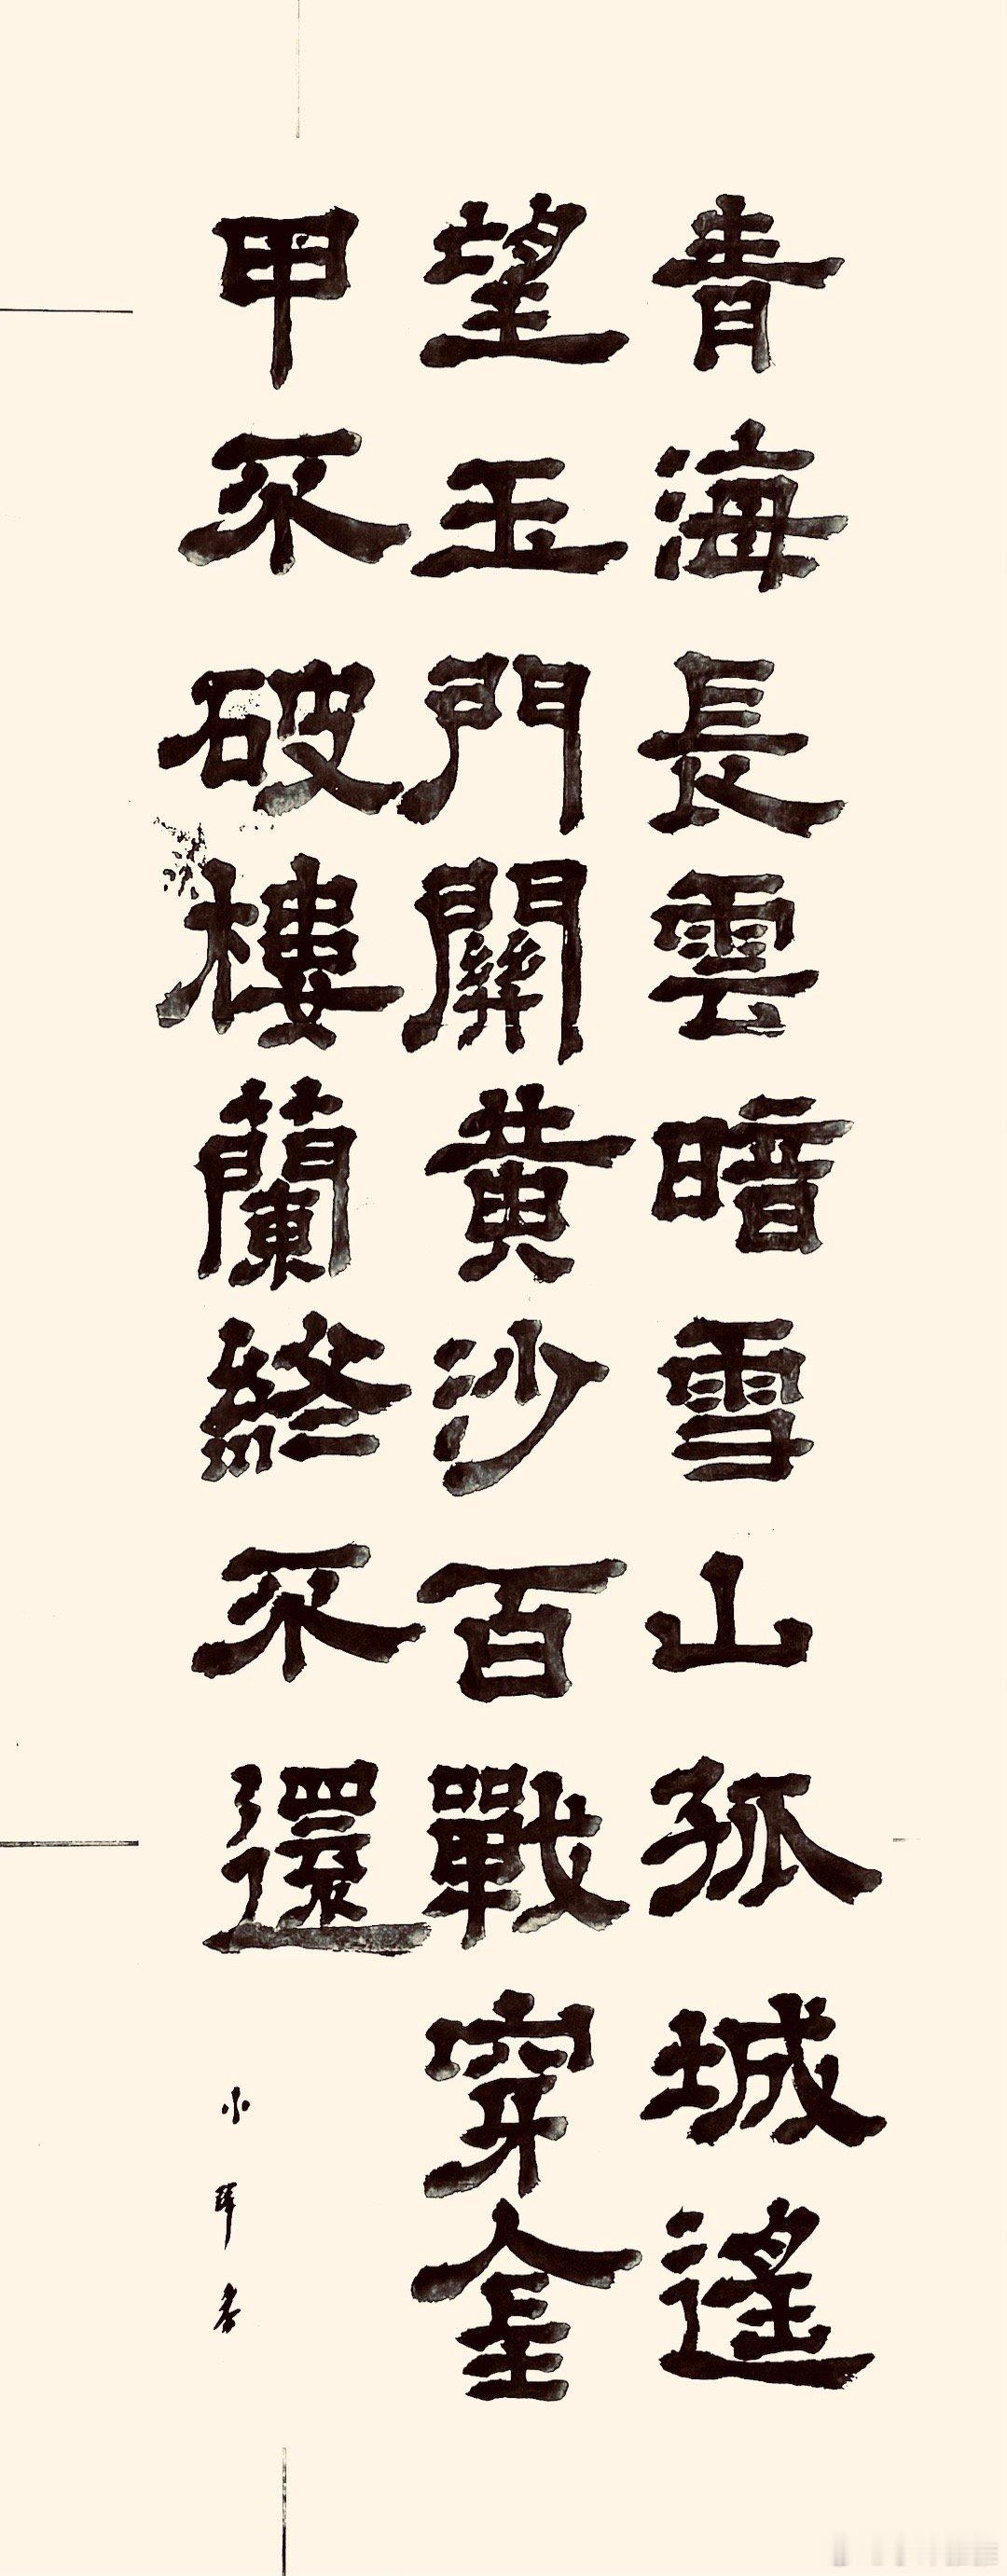 青海長雲暗雪山孤城遙
望玉門關黄沙百戰穿金
甲不破樓蘭終不還
小